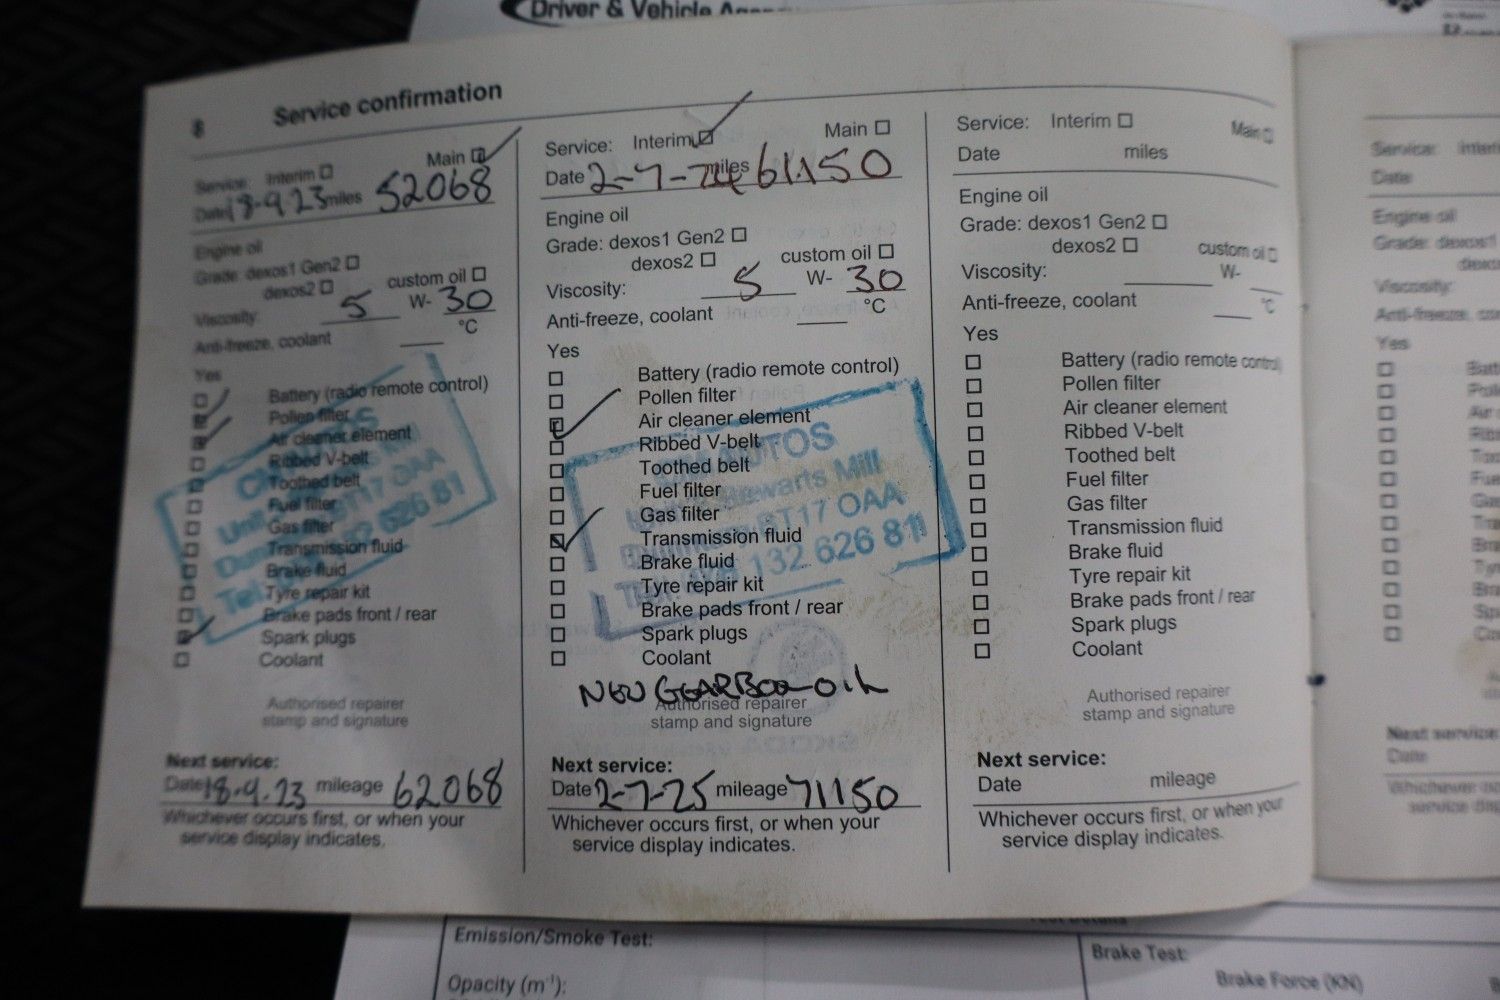 Driver & Vehicle Agency
8 Service confirmation
Service: Interim Main
Date 18-9 23 miles 52068
Engine oil
Grade: dexos1 Gen2
dexos2 custom oil
Viscosity: 5 W- 30
Anti-freeze, coolant °C
Yes
Battery (radio remote control)
Pollen filter
Air cleaner element
Ribbed V-belt
Toothed belt
Fuel filter
Gas filter
Transmission fluid
Brake fluid
Tyre repair kit
Brake pads front / rear
Spark plugs
Coolant
BT17 OAA
626 81
Authorised repairer
stamp and signature
Next service:
Date 18-9.23 mileage 62068
Whichever occurs first, or when your
service display indicates.
Service: Interim Main
Date 2-7-24 miles 61150
Engine oil
Grade: dexos1 Gen2
dexos2 custom oil
Viscosity: 5 W- 30
Anti-freeze, coolant °C
Yes
Battery (radio remote control)
Pollen filter
Air cleaner element
Ribbed V-belt
Toothed belt
Fuel filter
Gas filter
Transmission fluid
Brake fluid
Tyre repair kit
Brake pads front / rear
Spark plugs
Coolant
AUTOS
Stewarts Mill
BT17 OAA
132 626 811
NEW GEARBOX OIL
Authorised repairer
stamp and signature
Next service:
Date 2-7-25 mileage 71150
Whichever occurs first, or when your
service display indicates.
Service: Interim Main
Date miles
Engine oil
Grade: dexos1 Gen2
dexos2 custom oil
Viscosity: W-
Anti-freeze, coolant °C
Yes
Battery (radio remote control)
Pollen filter
Air cleaner element
Ribbed V-belt
Toothed belt
Fuel filter
Gas filter
Transmission fluid
Brake fluid
Tyre repair kit
Brake pads front / rear
Spark plugs
Coolant
Authorised repairer
stamp and signature
Next service:
Date mileage
Whichever occurs first, or when your
service display indicates.
Service:
Date
Engine oil
Grade: dexos1
Viscosity:
Yes
Next service:
Date
Emission/Smoke Test:
Opacity (m⁻¹):
Brake Test:
Brake Force (KN)